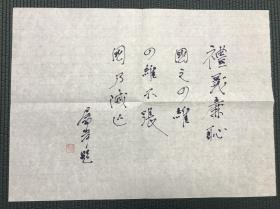 禮義廉恥
國之四維
四維不張
國乃滅亡
題